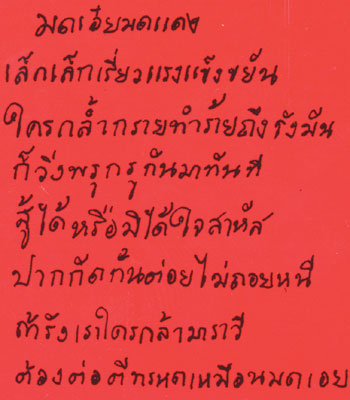 มดเอ๋ยมดแดง
เล็กเล็กเรี่ยวแรงแข็งขยัน
ใครกล้ำกรายทำร้ายถึงรังมัน
ก็วิ่งพรูกรูกันมาทันที
สู้ได้หรือมิได้ใจสาหัส
ปากกัดก้นต่อยไม่ถอยหนี
ถ้ารังเราใครกล้ามาราวี
ต้องต่อตีทรหดเหมือนมดเอย